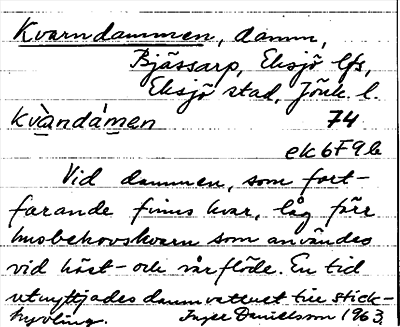 Kvarndammen, damm,
Bjässarp, Eksjö lfs,
Eksjö stad, Jönk. l.
kvàndàmen 74
ek 6F9b
Vid dammen, som fort-
farande finns kvar, låg förr
husbehovskvarn som användes
vid höst- och vårflöde. En tid
utnyttjades dammvattnet till stick-
hyvling. Inger Danielsson 1963.